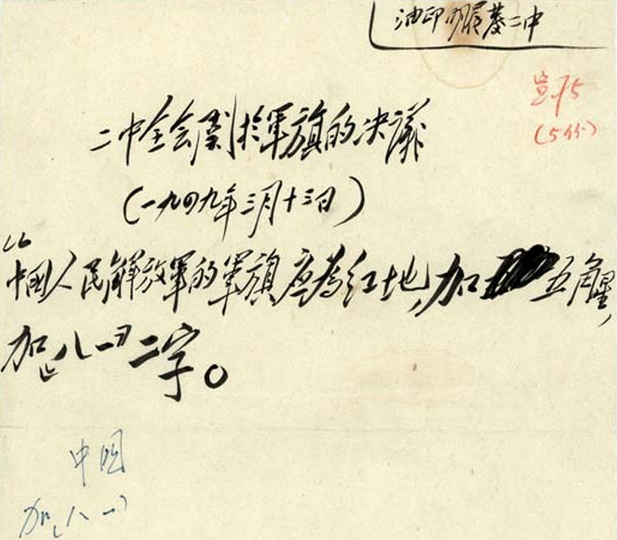 油印 二中
(5份)
二中全会关于军旗的决议
(一九四九年三月十三日)
“中國人民解放軍的軍旗应為红地,加五角星,
加“八一”二字。
中國
加“八一”